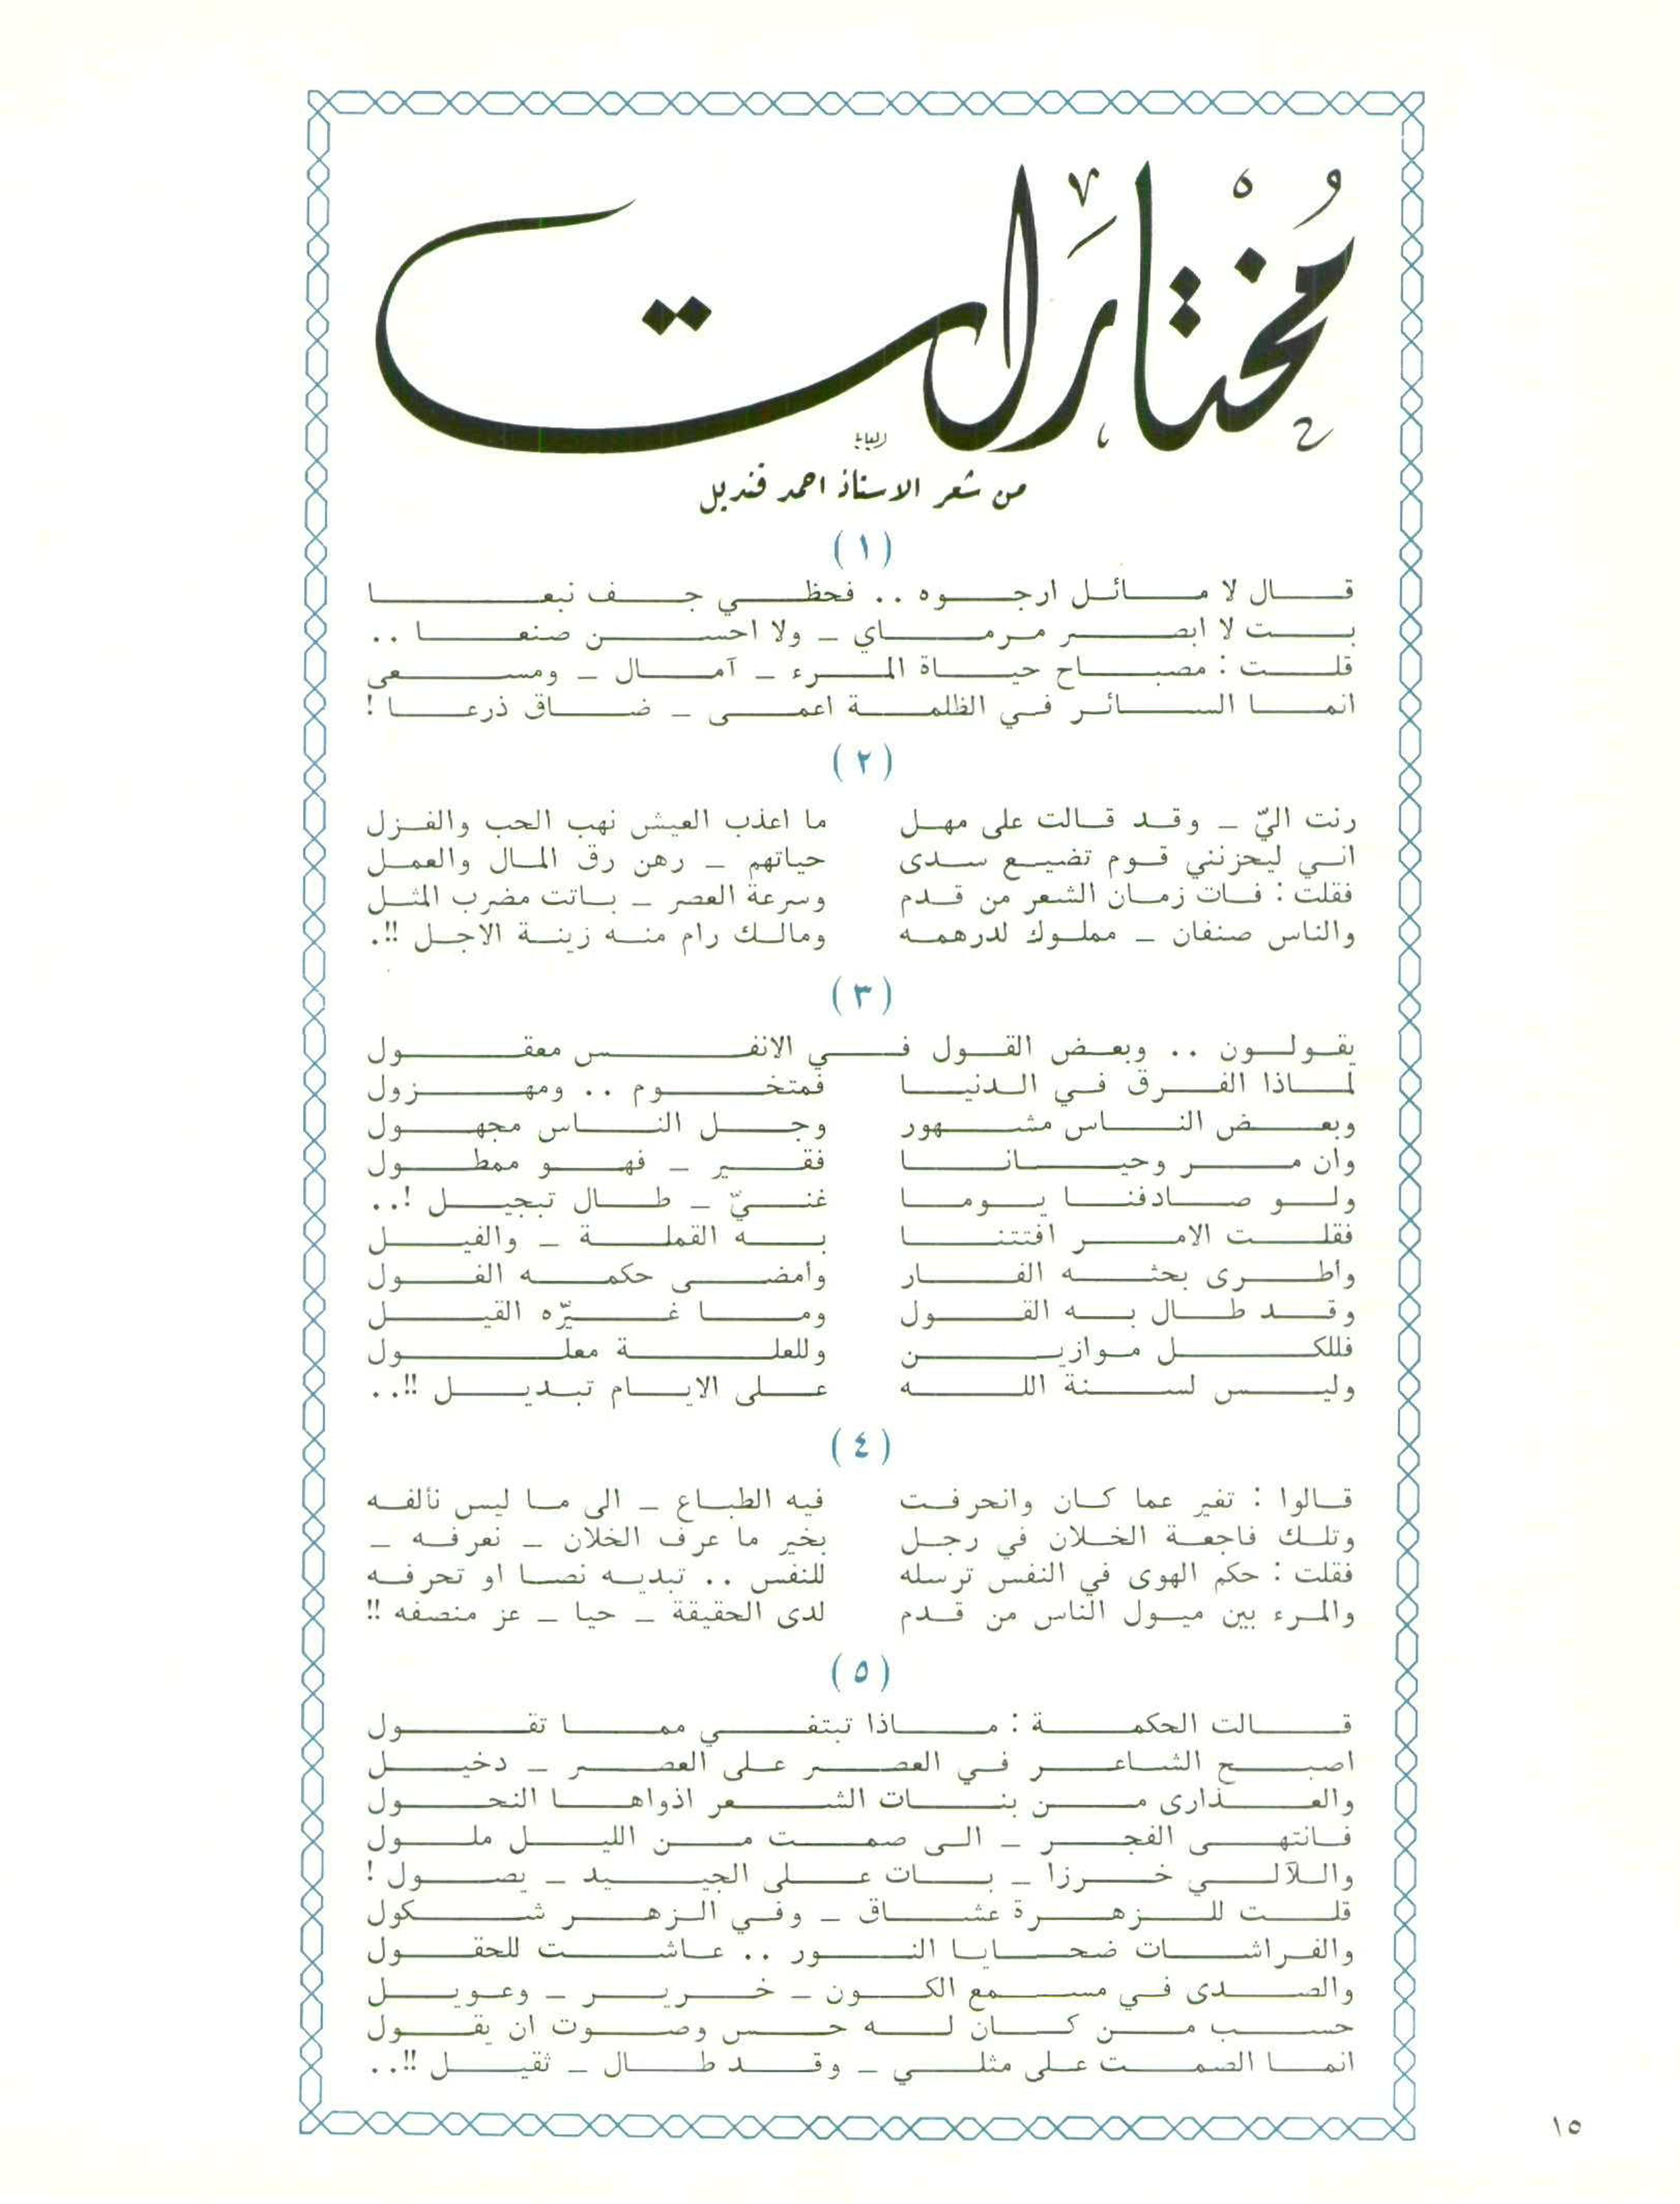 مُخْتَارَات
من شعر الاستاذ احمد قنديل
(١)
قال لا مائل ارجوه .. فحظي جف نبعا
بت لا ابصر مرماي – ولا احسن صنعا ..
قلت : مصباح حياة المرء – آمال – ومسعى
انما السائر في الظلمة اعمى – ضاق ذرعا !
(٢)
رنت اليّ – وقد قالت على مهل ما اعذب العيش نهب الحب والغزل
اني ليحزنني قوم تضيع سدى حياتهم – رهن رق المال والعمل
فقلت : فات زمان الشعر من قدم وسرعة العصر – باتت مضرب المثل
والناس صنفان – مملوك لدرهمه ومالك رام منه زينة الاجل !!.
(٣)
يقولون .. وبعض القول في الانفس معقول
لماذا الفرق في الدنيا فمتخوم .. ومهزول
وبعض الناس مشهور وجل الناس مجهول
وان مر وحيانا فقير – فهو ممطول
ولو صادفنا يوما غنيّ – طال تبجيل !..
فقلت الامر افتتنا به القملة – والفيل
واطرى بحثه الفار وامضى حكمه الغول
وقد طال به القول وما غيّره القيل
فللكل موازين وللعلة معلول
وليس لسنة الله على الايام تبديل !!..
(٤)
قالوا : تغير عما كان وانحرفت فيه الطباع – الى ما ليس نألفه
وتلك فاجعة الخلان في رجل بخير ما عرف الخلان – نعرفه –
فقلت : حكم الهوى في النفس ترسله للنفس .. تبديه نصا او تحرفه
والمرء بين ميول الناس من قدم لدى الحقيقة – حيا – عز منصفه !!
(٥)
قالت الحكمة : ماذا تبتغي مما تقول
اصبح الشاعر في العصر على العصر – دخيل
والعذارى من بنات الشعر اذواها النحول
فانتهى الفجر – الى صمت من الليل ملول
واللآلي خرزا – بات على الجيد – يصول !
قلت للزهرة عشاق – وفي الزهر شكول
والفراشات ضحايا النور .. عاشت للحقول
والصدى في مسمع الكون – خرير – وعويل
حسب من كان له حس وصوت ان يقول
انما الصمت على مثلي – وقد طال – ثقيل !!..
١٥